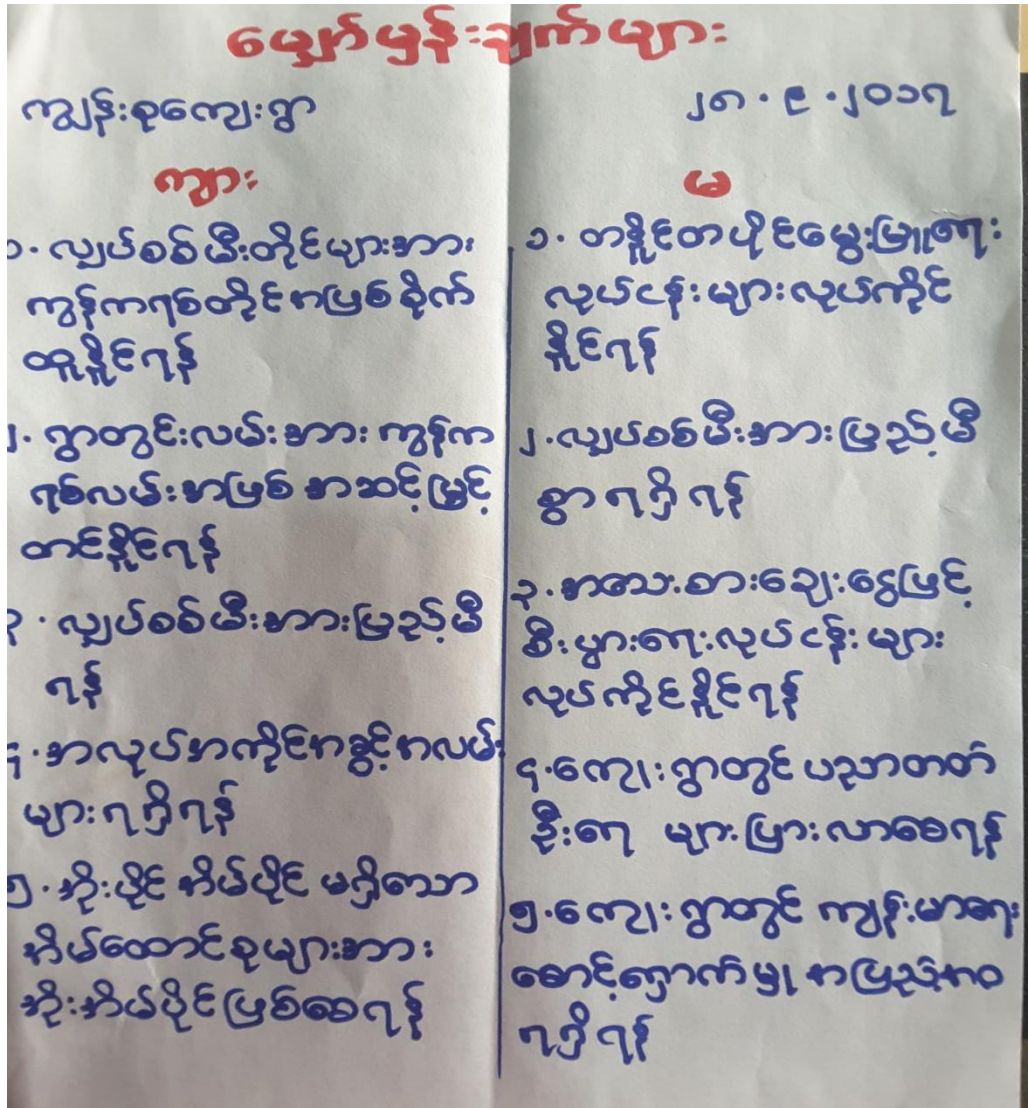 မျှော်မှန်းချက်များ
ကျွန်းစုကျေးရွာ
၂၈.၉.၂၀၁၇
ကျား
၁. လျှပ်စစ်မီးတိုင်များအား
ကွန်ကရစ်တိုင်အဖြစ် စိုက်
ထူနိုင်ရန်
၂. ရွာတွင်းလမ်းအား ကွန်က
ရစ်လမ်းအဖြစ် အဆင့်မြှင့်
တင်နိုင်ရန်
၃. လျှပ်စစ်မီးအားပြည့်မီ
ရန်
၄. အလုပ်အကိုင်အခွင့်အလမ်း
များရရှိရန်
၅. အိုးပိုင် အိမ်ပိုင် မရှိသော
အိမ်ထောင်စုများအား
အိုးအိမ်ပိုင်ဖြစ်စေရန်
မ
၁. တနိုင်တပိုင်မွေးမြူရေး
လုပ်ငန်းများလုပ်ကိုင်
နိုင်ရန်
၂. လျှပ်စစ်မီးအားပြည့်မီ
စွာ ရရှိရန်
၃. အသေးစားချေးငွေဖြင့်
စီးပွားရေးလုပ်ငန်းများ
လုပ်ကိုင်နိုင်ရန်
၄. ကျေးရွာတွင် ပညာတတ်
ဦးရေ များပြားလာစေရန်
၅. ကျေးရွာတွင် ကျန်းမာရေး
စောင့်ရှောက်မှု အပြည့်အဝ
ရရှိရန်